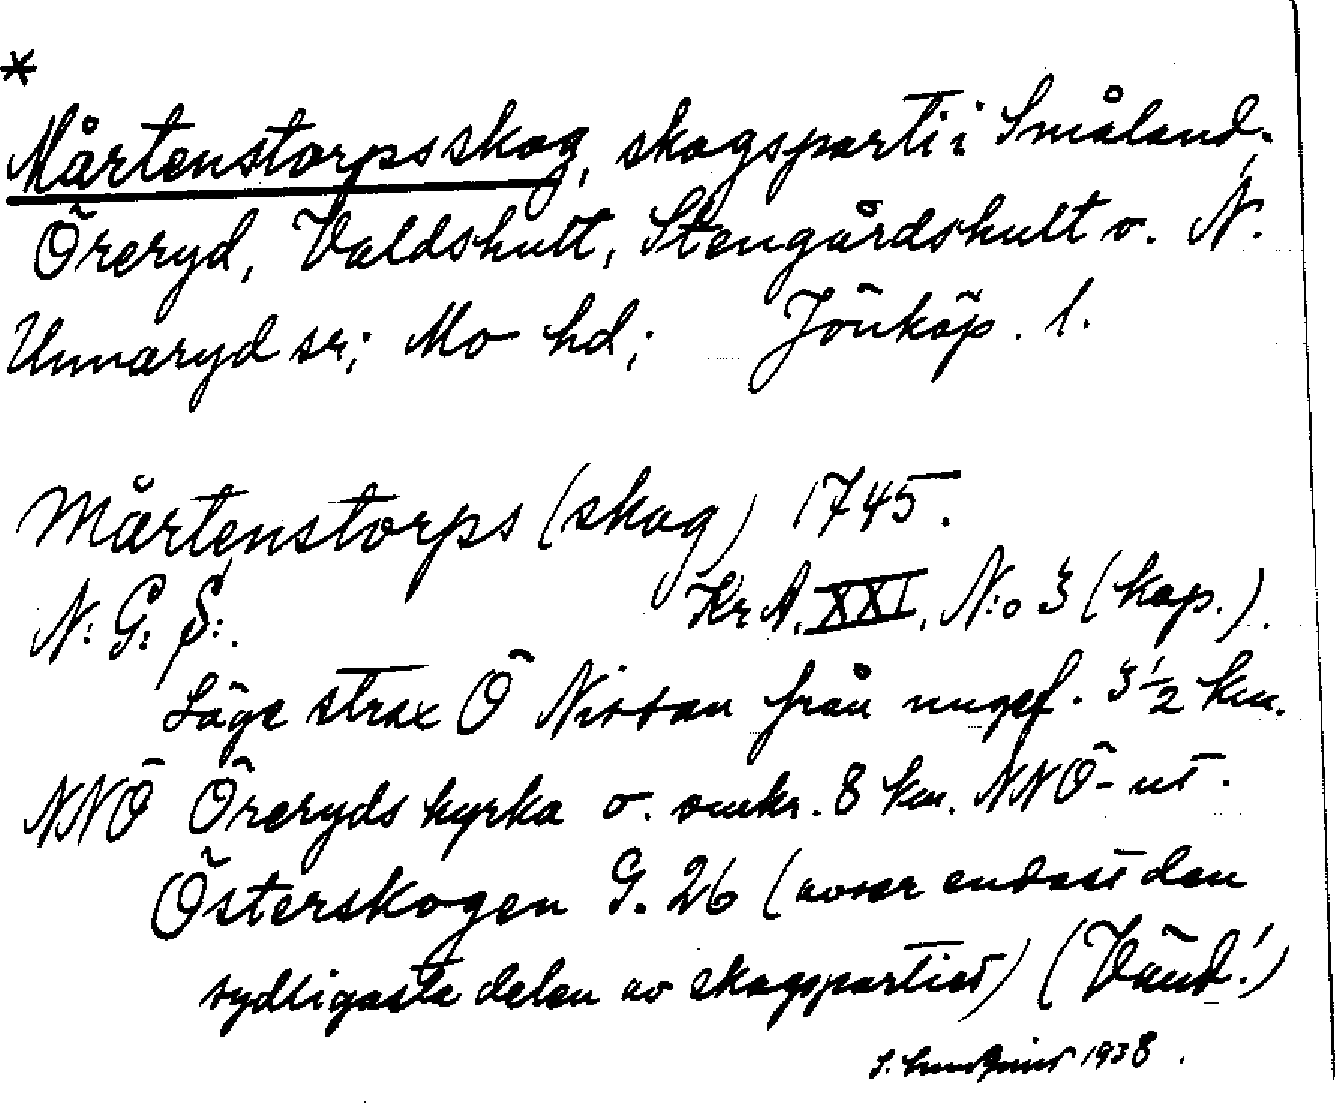 *
Mårtenstorpsskog, skogsparti i Småland.
Öreryd, Valdshult, Stengårdshult o. N.
Unnaryd sr; Mo hd; Jönköp. l.
Mårtenstorps (skog) 1745.
N: G: S:. Kr A. XXI. N:o 3 (kop.).
Läge strax Ö Nissan från ungef. 3 1/2 km.
NNÖ Öreryds kyrka o. omkr. 8 km. NNÖ-ut.
Österskogen G. 26 (avser endast den
sydligaste delen av skogspartiet) (Vänd!)
1938.